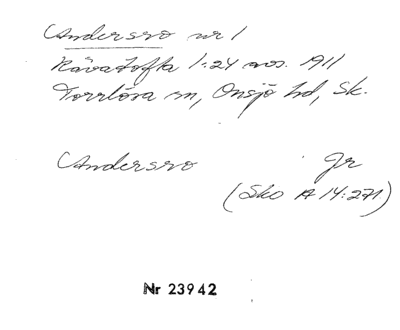 Andersro nr 1
Råvatofta 1:24 avs. 1911
Torrlösa sn, Onsjö hd, Sk.
Andersro Jr
(Sko A 14:271)
Nr 23942